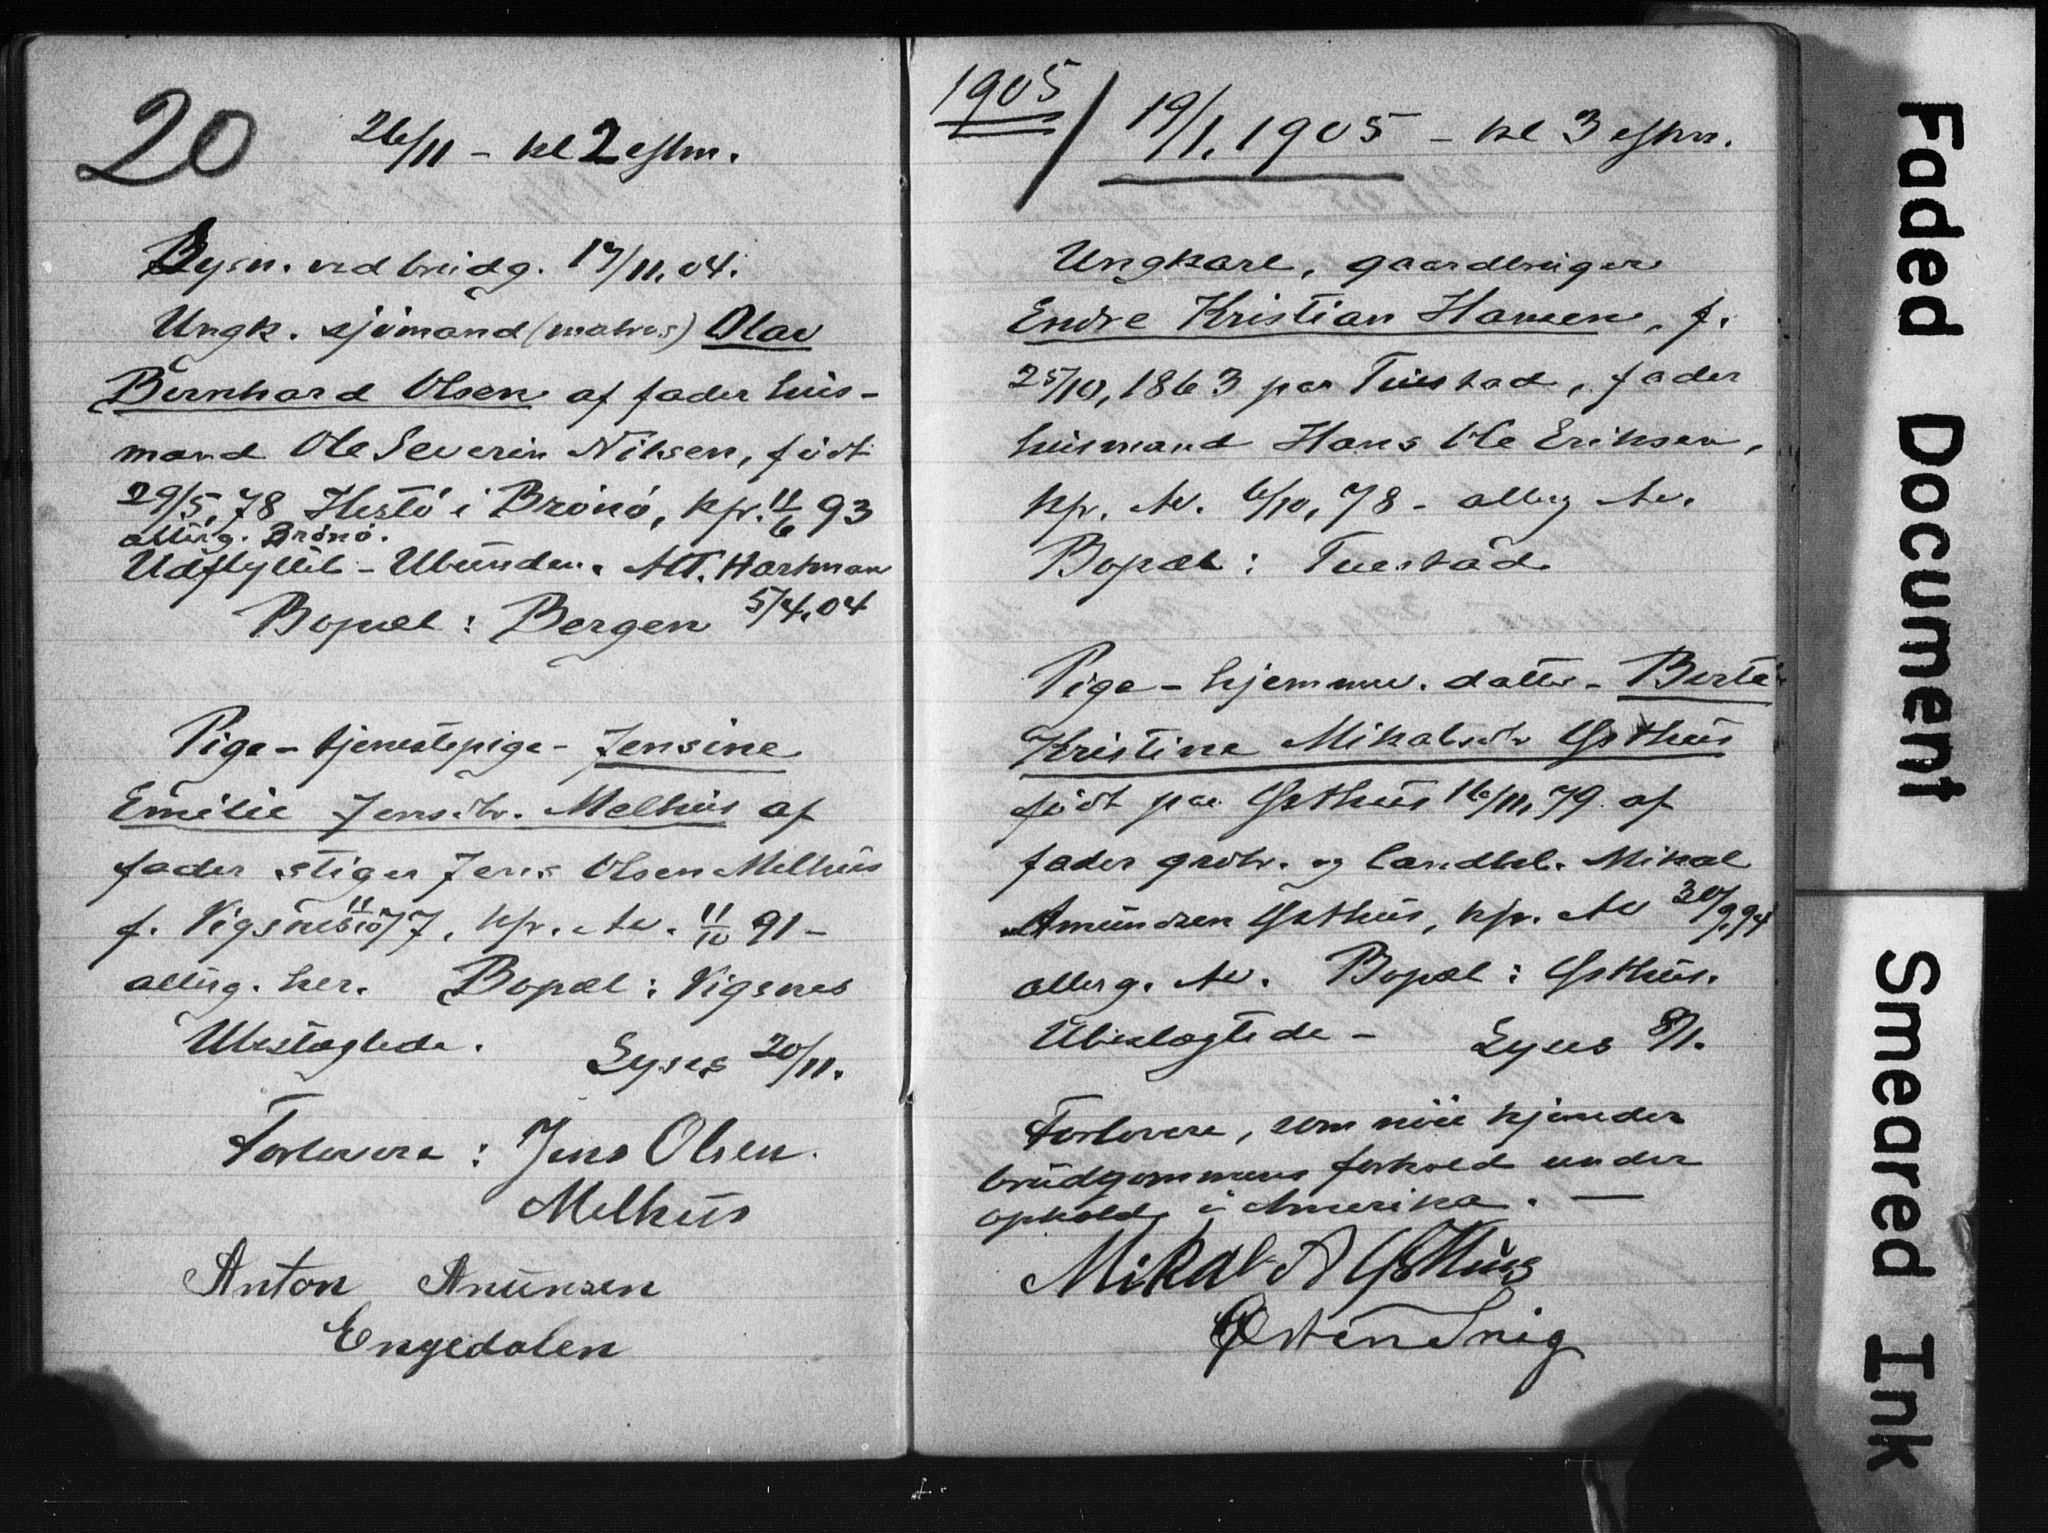 20
26/11 - kl 2 eftm.
Lysn. ved brudg. 17/11.04.
Ungk. sjömand (matros) Olav
Bernhard Olsen af fader hus-
mand Ole Severin Nilsen, födt
29/5, 78 Hestö i Brönö, kpr. 11/6 93
alterg. Brönö.
Udflyttet - Ubunden. Hartman
5/4.04
Bopæl : Bergen
Pige - tjenestepige - Jensine
Emilie Jensdtr. Melhus af
fader stiger Jens Olsen Melhus
f. Vigsnes 11/10 77, kpr. Av. 11/10 91 -
alterg. her. Bopæl : Vigsnes
Ubeslægtede. Lyses 20/11.
Forlovere : Jens Olsen.
Melhus
Anton Amunsen
Engedalen
1905
19/1, 1905 - kl 3 eftm.
Ungkarl, gaardbruger
Endre Kristian Hansen, f.
25/10, 1863 paa Tuestad, fader
husmand Hans Ole Eriksen,
kpr. Av. 6/10, 78 - alterg Av.
Bopæl : Tuestad
Pige - hjemmev. datter - Berta
Kristine Mikalsdtr Østhus
födt paa Østhus 16/11, 79 af
fader grdbr. og landhl. Mikal
Amundsen Østhus, kpr. Av 30/9, 94
alterg. Av. Bopæl : Østhus.
Ubeslægtede - Lyses 8/1.
Forlovere, som nöie kjender
brudgommens forhold under
ophold i Amerika. -
Mikal A Østhus
Østen Snig
Faded Document
Smeared Ink